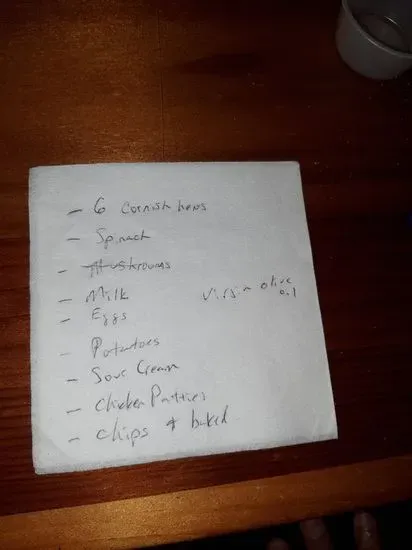 - 6 Cornish hens
- Spinach
- Mushrooms
- Milk
Virgin olive oil
- Eggs
- Potatoes
- Sour Cream
- Chicken Patties
- Chips & baked